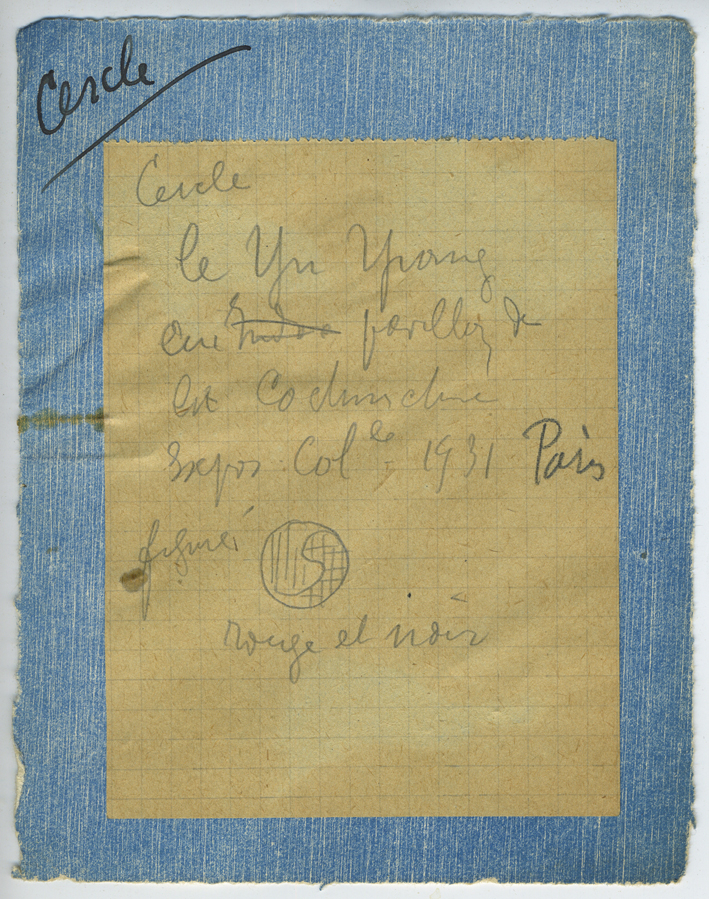 Cercle
Cercle
le Yn Yang
au pavillon de
la Cochinchine
Expos. Colle 1931 Paris
figuré
rouge et noir